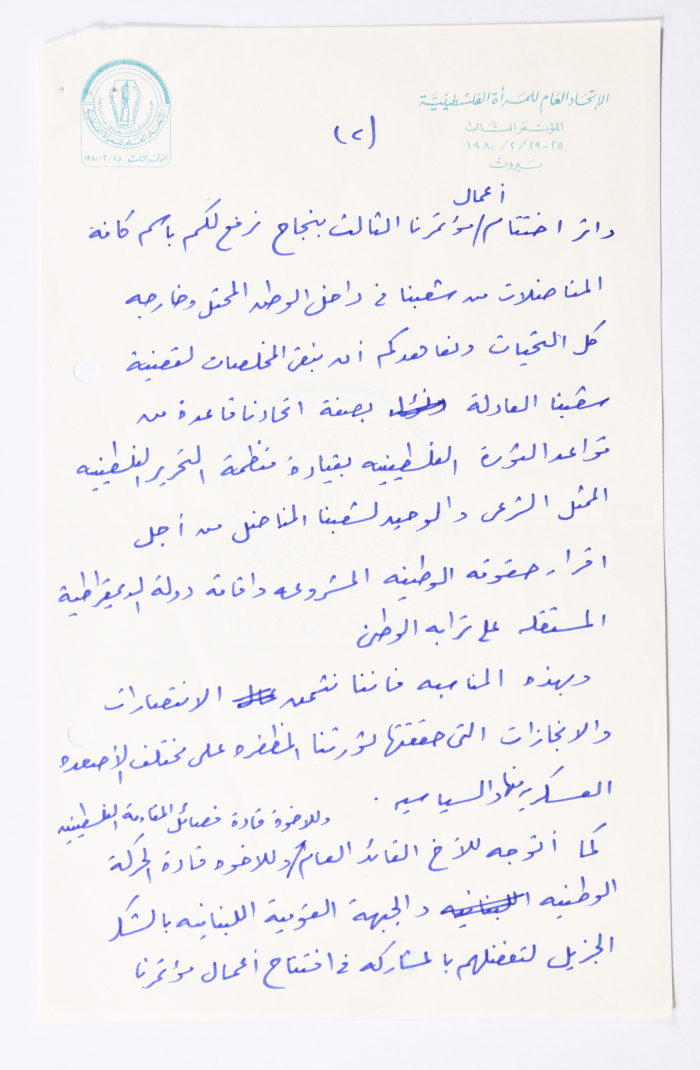 الإتحاد العام للمرأة الفلسطينية
المؤتمر الثالث
٢٥-٢٩/ ٢/ ١٩٨٠
بيروت
الإتحاد العام للمرأة الفلسطينية
المؤتمر الثالث
(٢)
أعمال
واثر اختتام / مؤتمرنا الثالث بنجاح نرفع لكم باسم كافة
المناضلات من شعبنا في داخل الوطن المحتل وخارجه
كل التحيات ونعاهدكم أن نبقى المخلصات لقضية
شعبنا العادلة بصفة اتحادنا قاعدة من
قواعد الثورة الفلسطينيه بقيادة منظمة التحرير الفلسطينيه
الممثل الشرعي والوحيد لشعبنا المناضل من أجل
اقرار حقوقه الوطنيه المشروعه واقامة دولة الديمقراطية
المستقله على ترابه الوطني
وبهذه المناسبه فاننا نثمن الانتصارات
والانجازات التي حققتها ثورتنا المظفره على مختلف الأصعده
العسكريه منها والسياسيه .
وللاخوة قادة فصائل المقاومة الفلسطينيه
كما أتوجه للأخ القائد العام / وللاخوه قادة الحركة
الوطنيه اللبنانيه والجبهة القومية اللبنانيه بالشكر
الجزيل لتفضلهم بالمشاركه في افتتاح أعمال مؤتمرنا